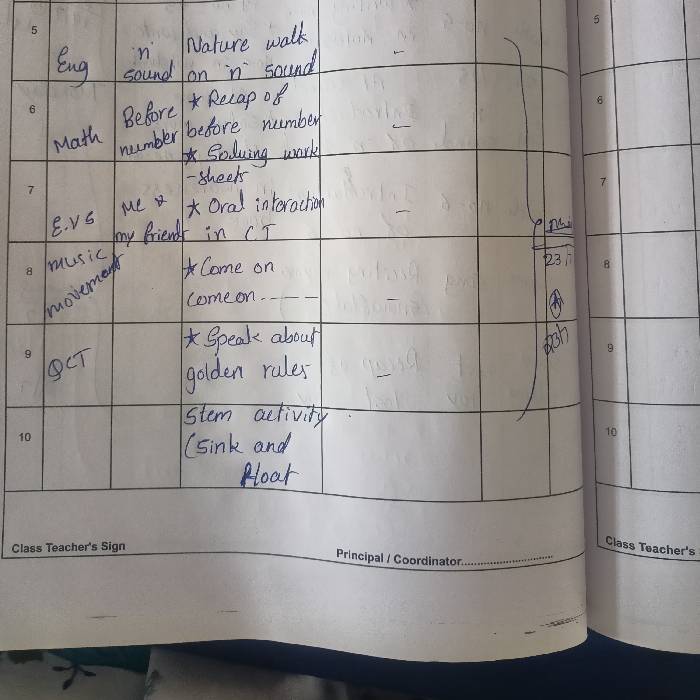 5
Eng
'n'
sound
Nature walk
on 'n' sound
-
6
Math
Before
number
* Recap of
before number
* Soluing work
-sheets
-
7
E.VS
Me &
my friends
* Oral interaction
in CT
-
8
music
movement
* Come on
come on -----
-
9
QCT
* Speak about
golden rules
-
10
Stem activity
(Sink and
float
Class Teacher's Sign
Principal / Coordinator
5
6
7
8
9
10
Class Teacher's